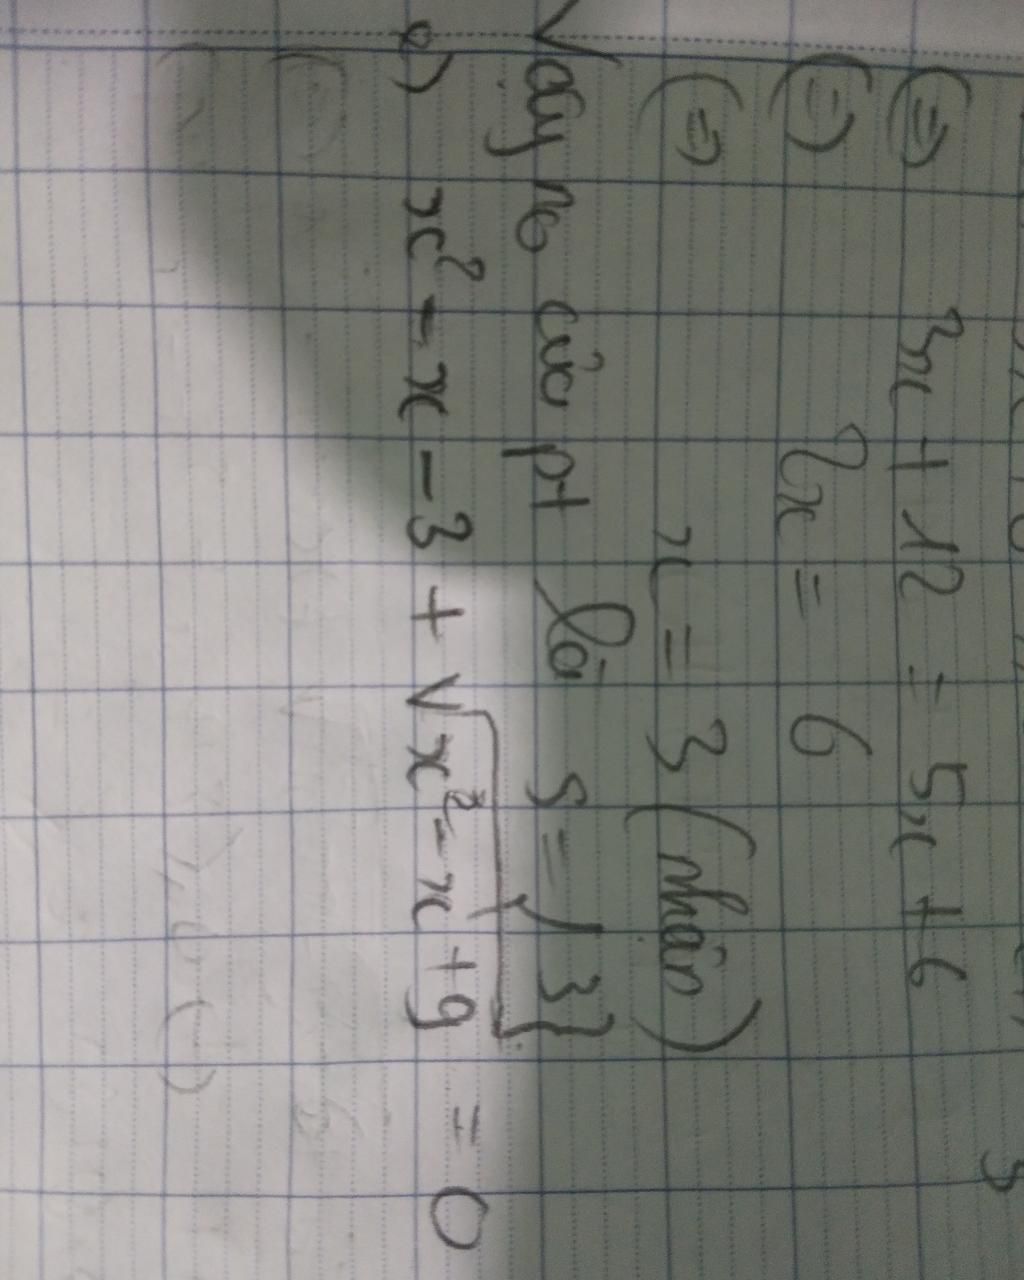 (=) 3x + 12 = 5x + 6
(=) 2x = 6
(=) x = 3 (nhận)
Vậy no của pt là S = {3}
e) x² - x - 3 + √x² - x + 9 = 0